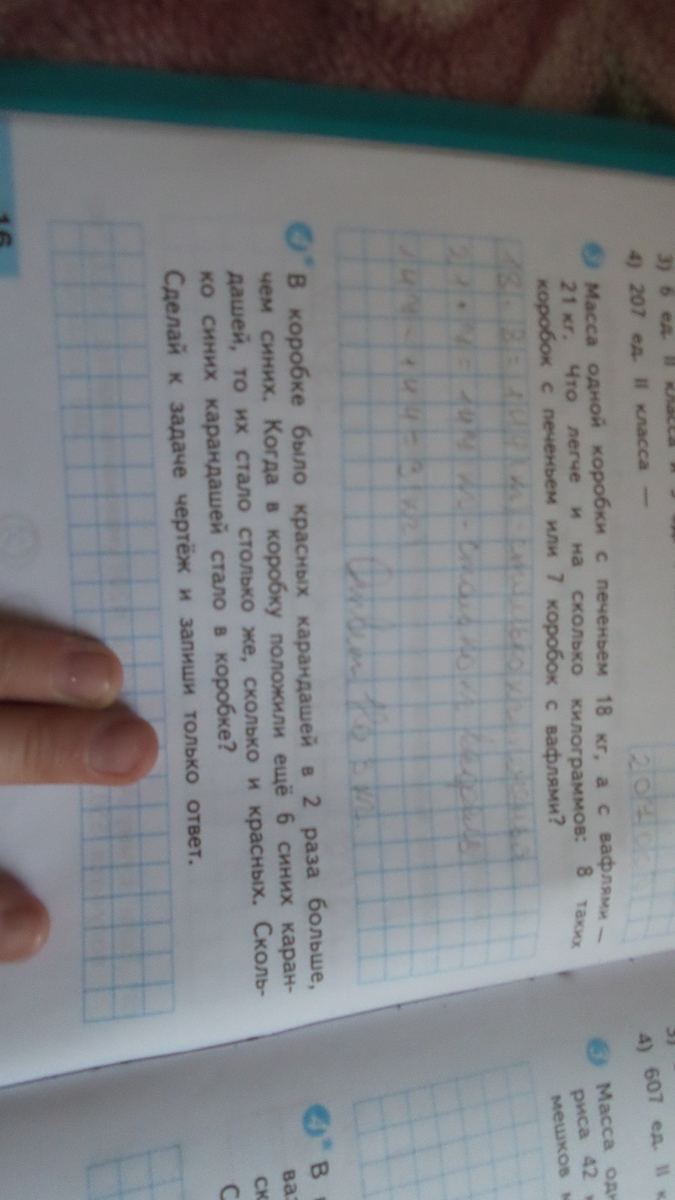 3) 6 ед. II класса и 5 ед
4) 207 ед. II класса —
20700
3 Масса одной коробки с печеньем 18 кг, а с вафлями —
21 кг. Что легче и на сколько килограммов: 8 таких
коробок с печеньем или 7 коробок с вафлями?
18 · 8 = 144
21 · 7 = 147
147 - 144 = 3 кг
4* В коробке было красных карандашей в 2 раза больше,
чем синих. Когда в коробку положили ещё 6 синих каран-
дашей, то их стало столько же, сколько и красных. Сколь-
ко синих карандашей стало в коробке?
Сделай к задаче чертёж и запиши только ответ.
16
4) 607 ед. II
3 Масса од
риса 42
мешков
4* В
ваз
ск
С